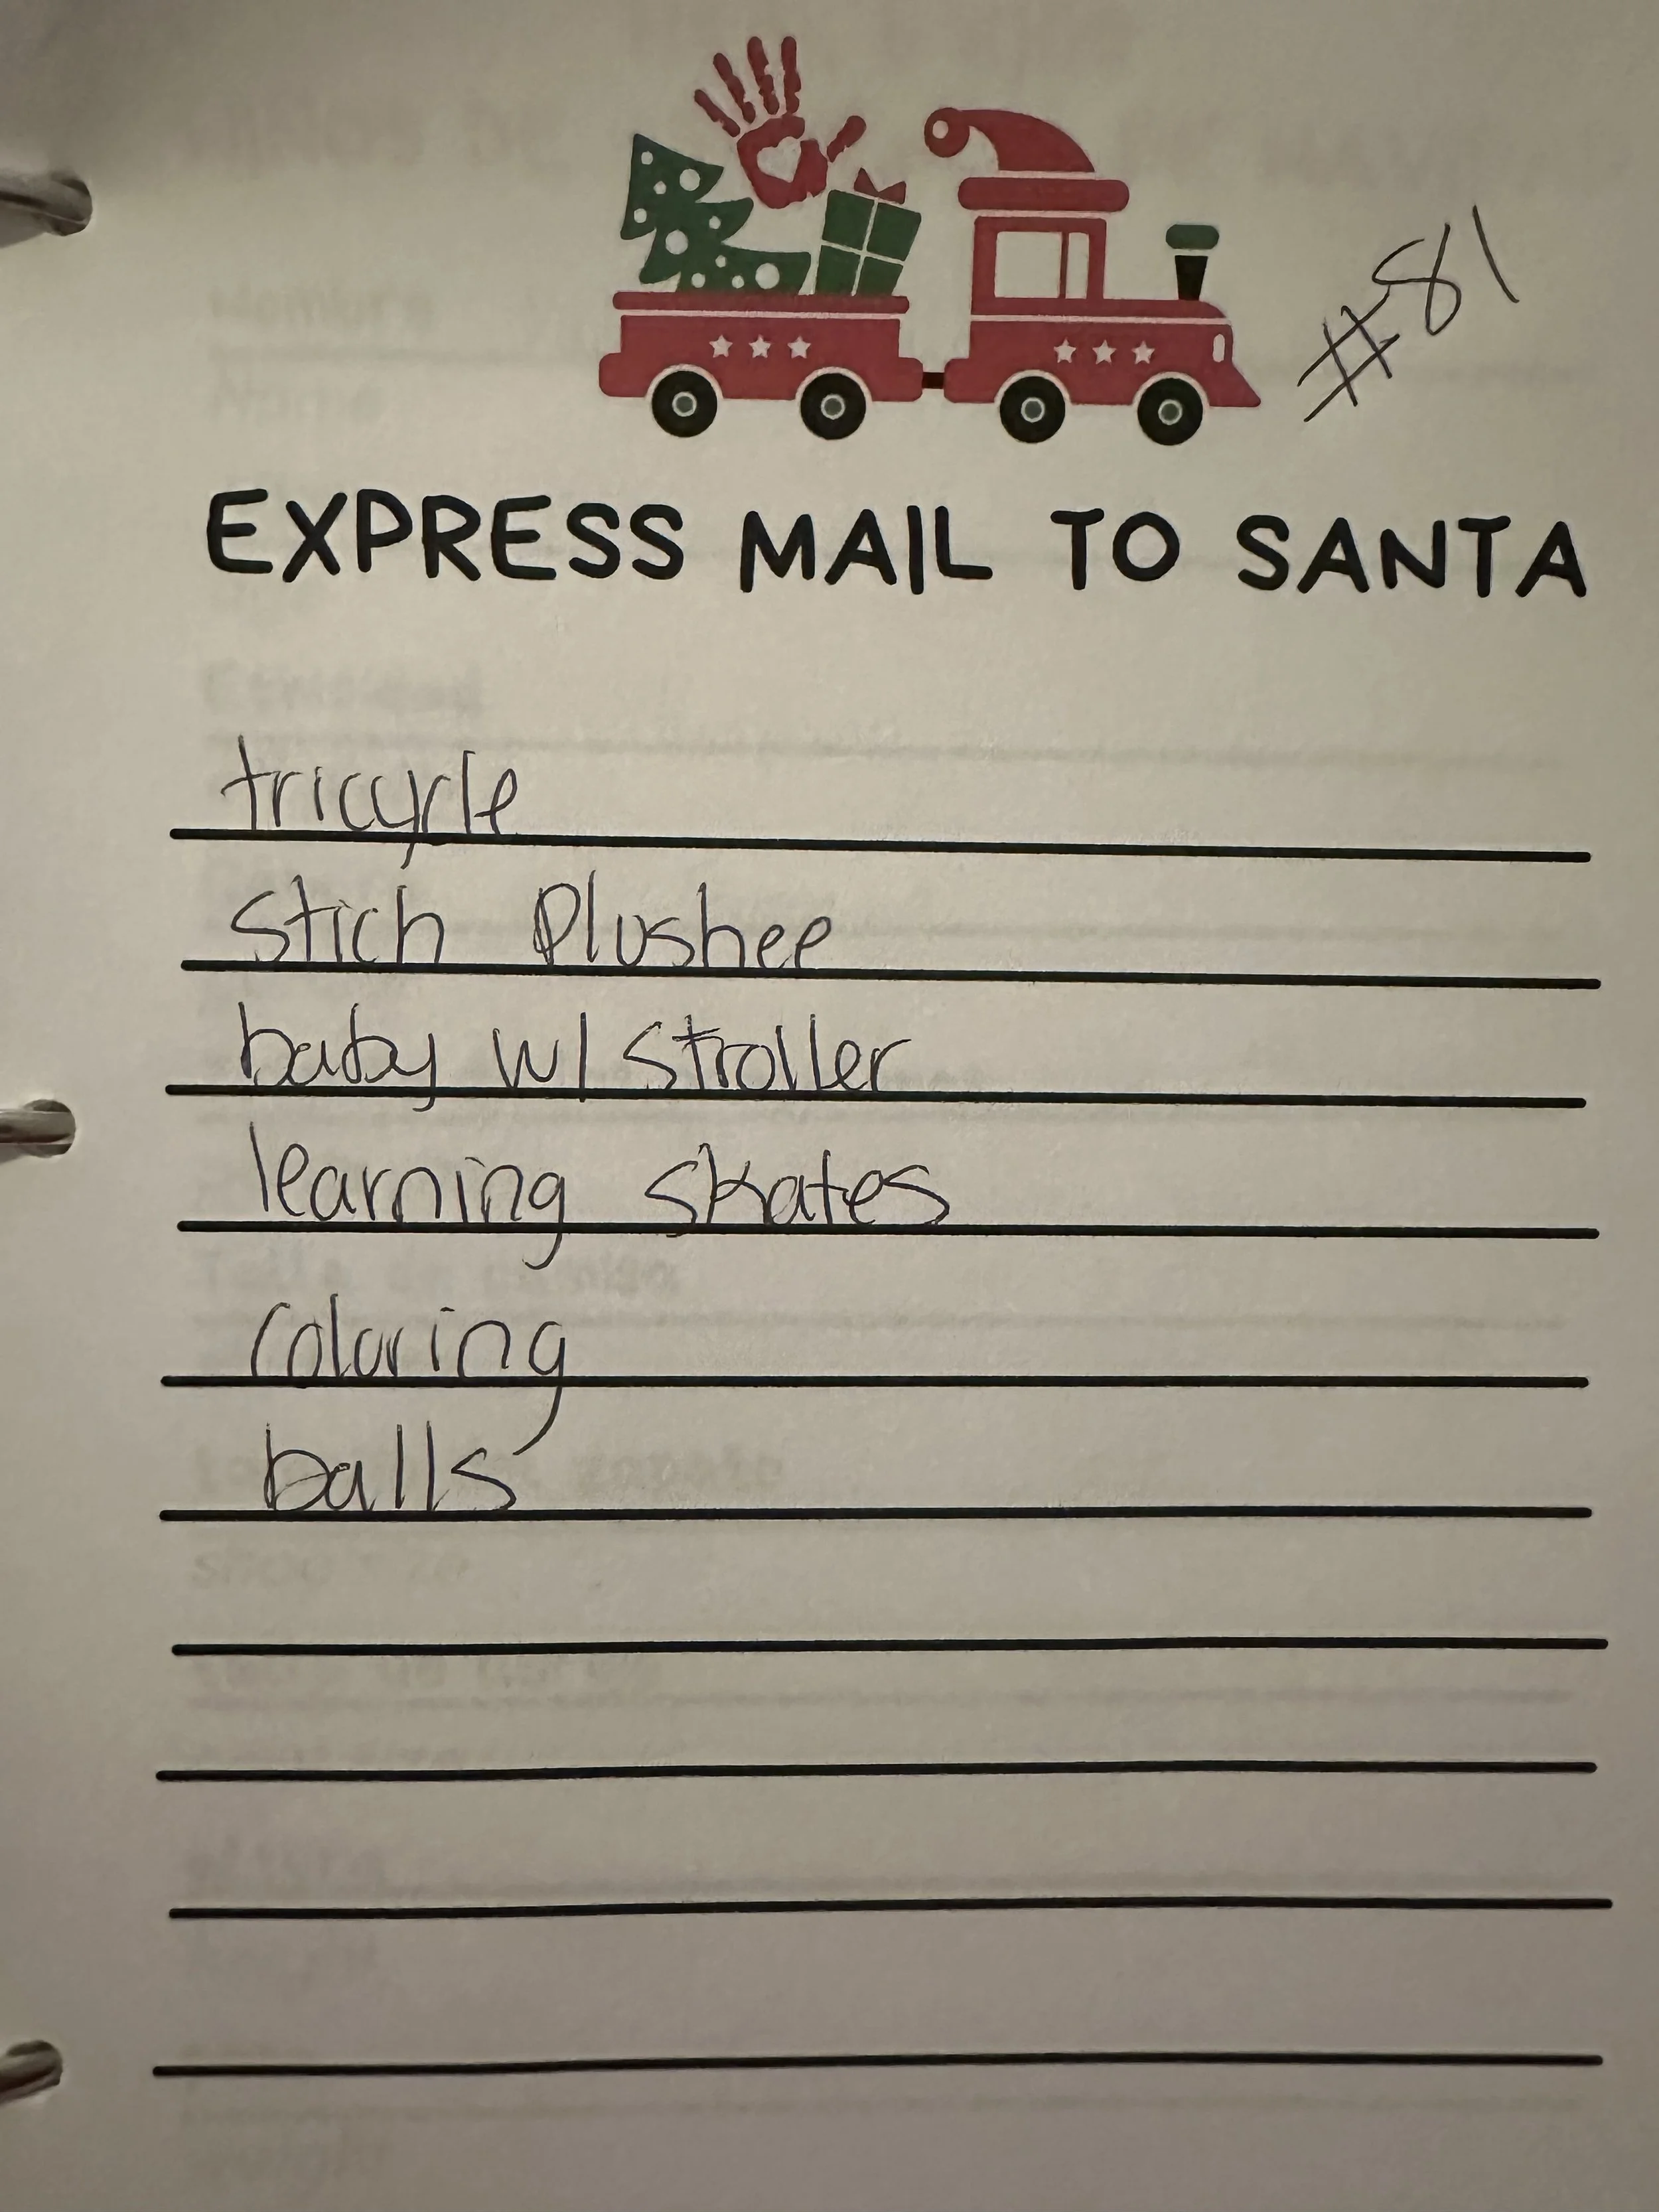 #81
EXPRESS MAIL TO SANTA
tricycle
Stich Plushee
baby w/ stroller
learning skates
coloring
balls